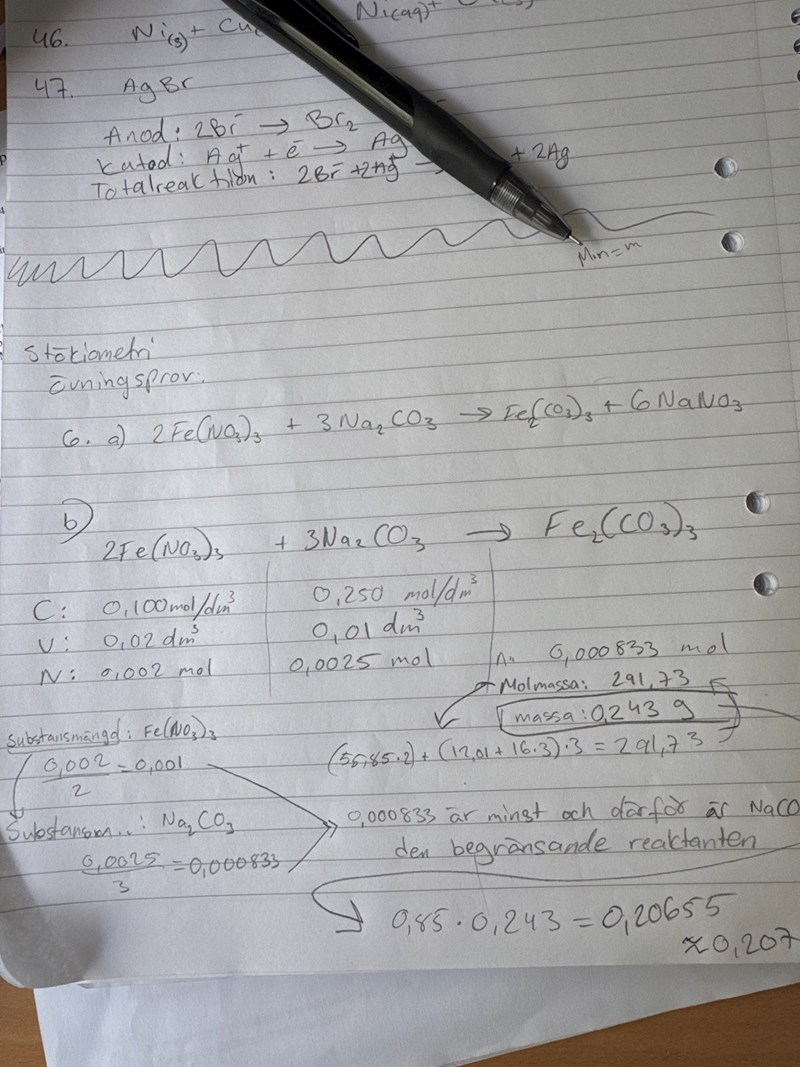 46. Ni(s) + Cu
Ni(aq)+
47. AgBr
Anod: 2Br⁻ → Br₂
Katod: Ag⁺ + e⁻ → Ag
Totalreaktion: 2Br⁻ + 2Ag⁺ → + 2Ag
M·n=m
Stökiometri
Övningsprov:
6. a) 2Fe(NO₃)₃ + 3Na₂CO₃ → Fe₂(CO₃)₃ + 6NaNO₃
b) 2Fe(NO₃)₃ + 3Na₂CO₃ → Fe₂(CO₃)₃
C: 0,100 mol/dm³ 0,250 mol/dm³
V: 0,02 dm³ 0,01 dm³
N: 0,002 mol 0,0025 mol 0,000833 mol
Molmassa: 291,73
massa: 0,243 g
(55,85·2)+(12,01+16·3)·3=291,73
Substansmängd: Fe(NO₃)₃
0,002/2 = 0,001
Substansm..: Na₂CO₃
0,0025/3 = 0,000833
0,000833 är minst och därför är NaCO
den begränsande reaktanten
0,85·0,243=0,20655
≈0,207